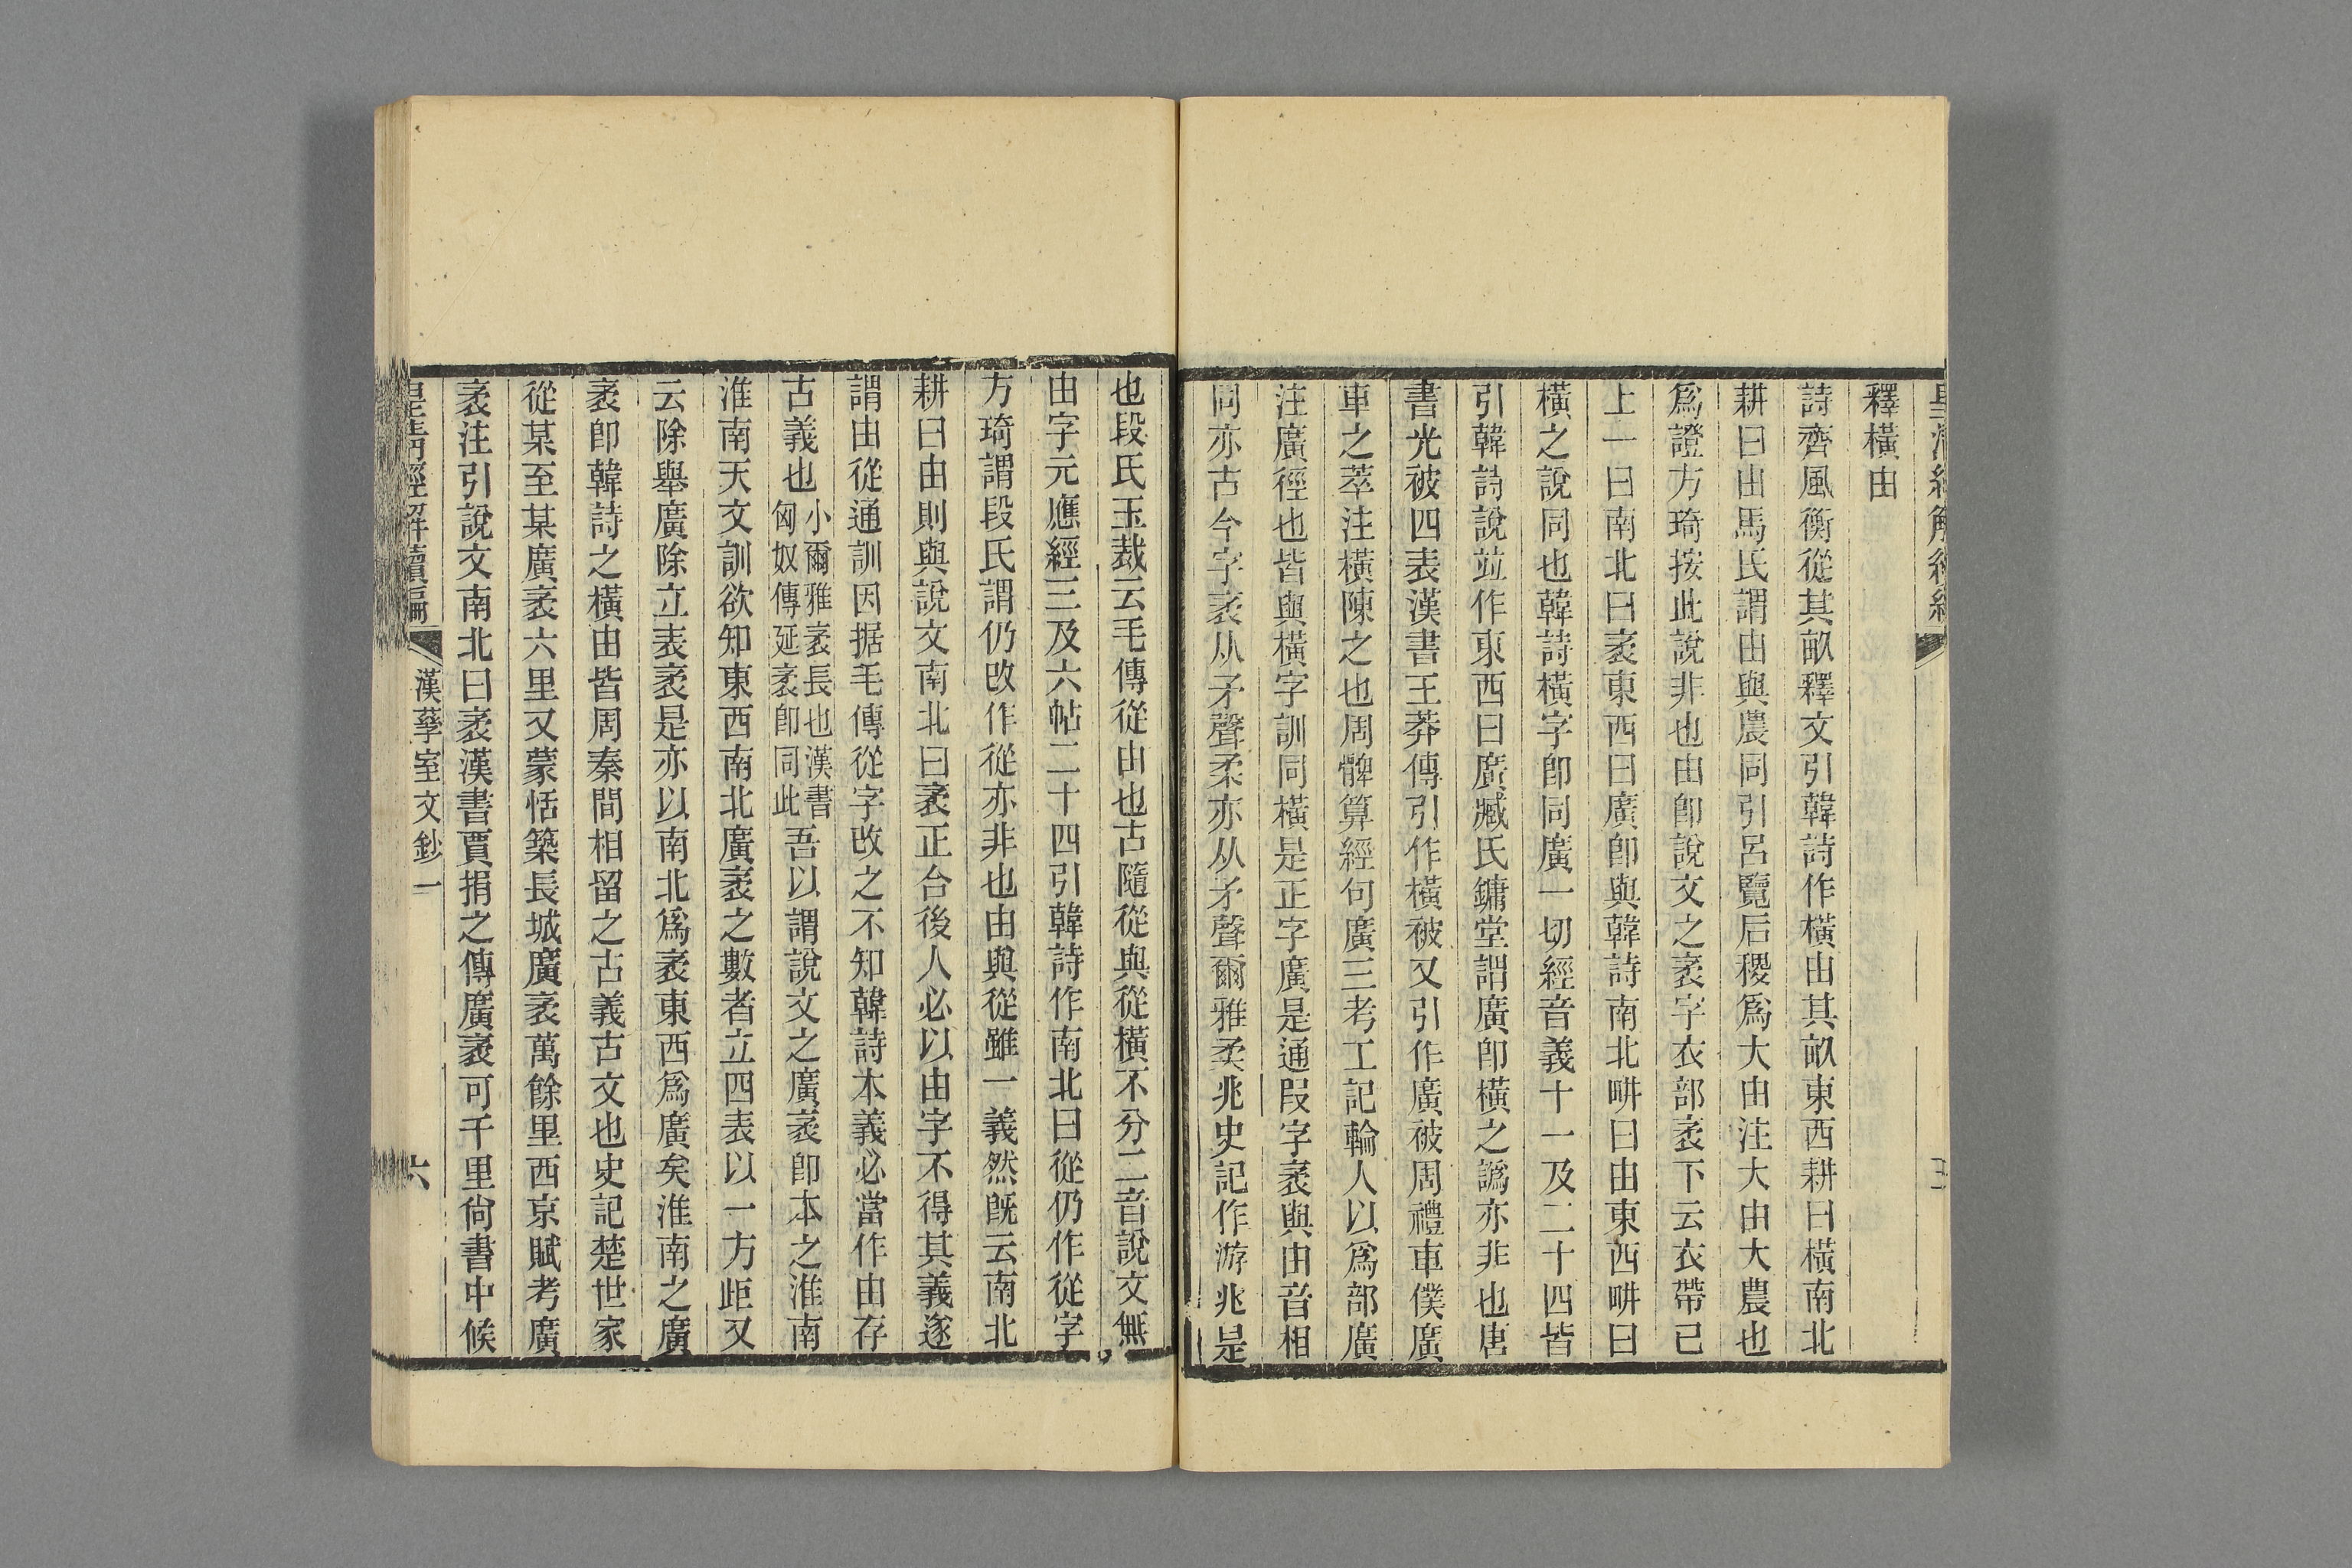 釋橫由
詩齊風衡從其畝釋文引韓詩作橫由其畝東西耕曰橫南北
耕曰由馬氏謂由與農同引呂覽后稷爲大由注大由大農也
爲證方琦按此說非也由卽說文之袤字衣部袤下云衣帶已
上一曰南北曰袤東西曰廣卽與韓詩南北畊曰由東西畊曰
橫之說同也韓詩橫字卽同廣一切經音義十一及二十四皆
引韓詩說竝作東西曰廣臧氏鏞堂謂廣卽橫之譌亦非也唐
書光被四表漢書王莽傳引作橫被又引作廣被周禮車僕廣
車之萃注橫陳之也周髀算經句廣三考工記輪人以爲部廣
注廣徑也皆與橫字訓同橫是正字廣是通叚字袤與由音相
同亦古今字袤从矛聲柔亦从矛聲爾雅柔兆史記作游兆是
也段氏玉裁云毛傳從由也古隨從與從橫不分二音說文無
由字元應經三及六帖二十四引韓詩作南北曰從仍作從字
方琦謂段氏謂仍改作從亦非也由與從雖一義然旣云南北
耕曰由則與說文南北曰袤正合後人必以由字不得其義遂
謂由從通訓因据毛傳從字改之不知韓詩本義必當作由存
古義也小爾雅袤長也漢書匈奴傳延袤卽同此吾以謂說文之廣袤卽本之淮南
淮南天文訓欲知東西南北廣袤之數者立四表以一方歫又
云除舉廣除立表袤是亦以南北爲袤東西爲廣矣淮南之廣
袤卽韓詩之橫由皆周秦間相留之古義古文也史記楚世家
從某至某廣袤六里又蒙恬築長城廣袤萬餘里西京賦考廣
袤注引說文南北曰袤漢書賈捐之傳廣袤可千里尙書中候
皇清經解續編 漢孳室文鈔一 六